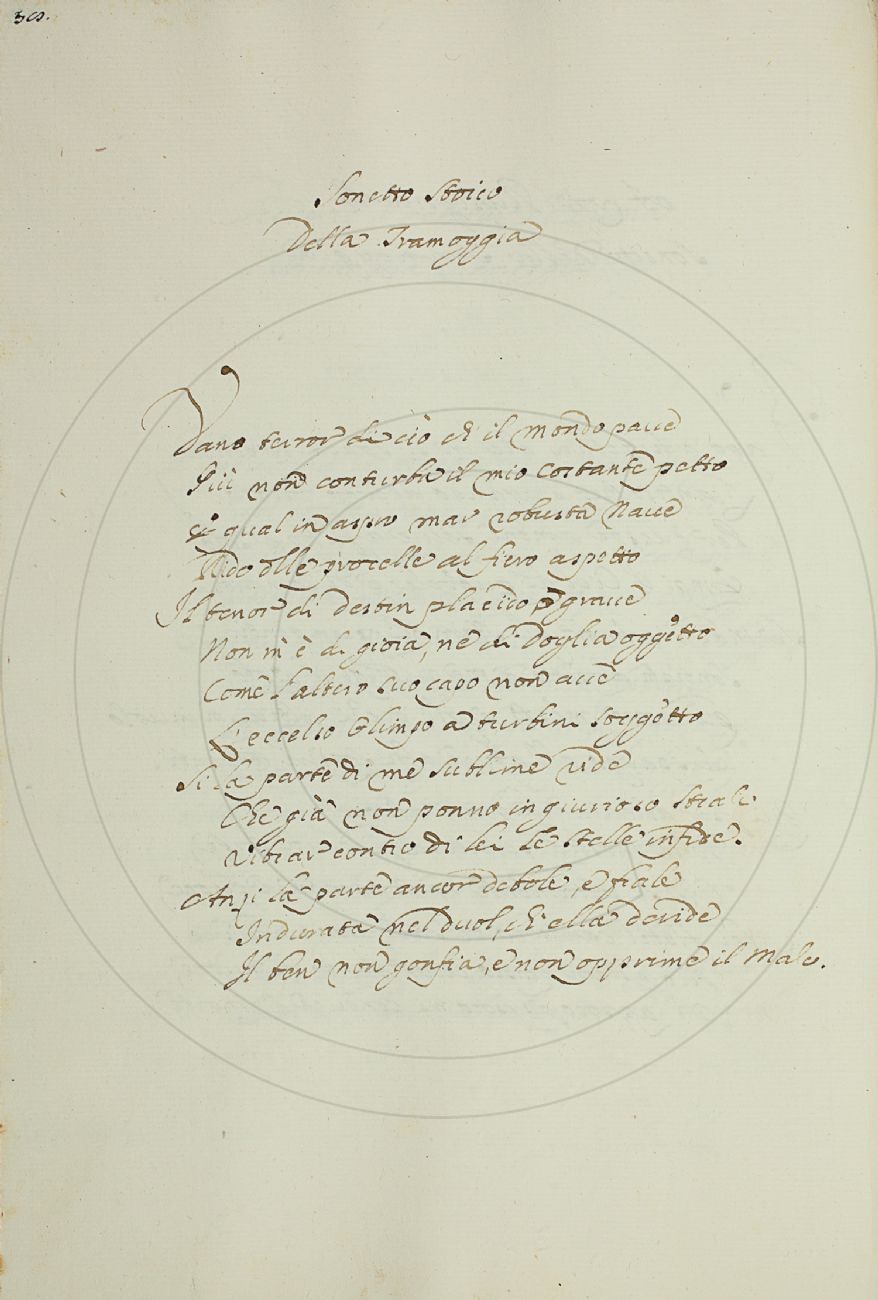 30.
Sonetto Stoico
Della Tramoggia
Vano terror di ciò ch' il mondo pave
Più non conturba il mio costante petto
E qual in aspro mar robusta Nave
Rido dlle procelle al fiero aspetto
Il tenor di destin placido ò grave
Non m' è di gioia, ne di Doglia oggetto
Come l'altero suo capo non ave
L'eccelso Olimpo a turbini soggetto
Si la parte di me sublime ride
Che già non ponno ingiurioso strale
Vibrar contro di lei le stelle infide.
Anzi la parte ancor debole, e frale
Indurata nel duol, ch' ella deride
Il ben non gonfia, e non opprime il Male.